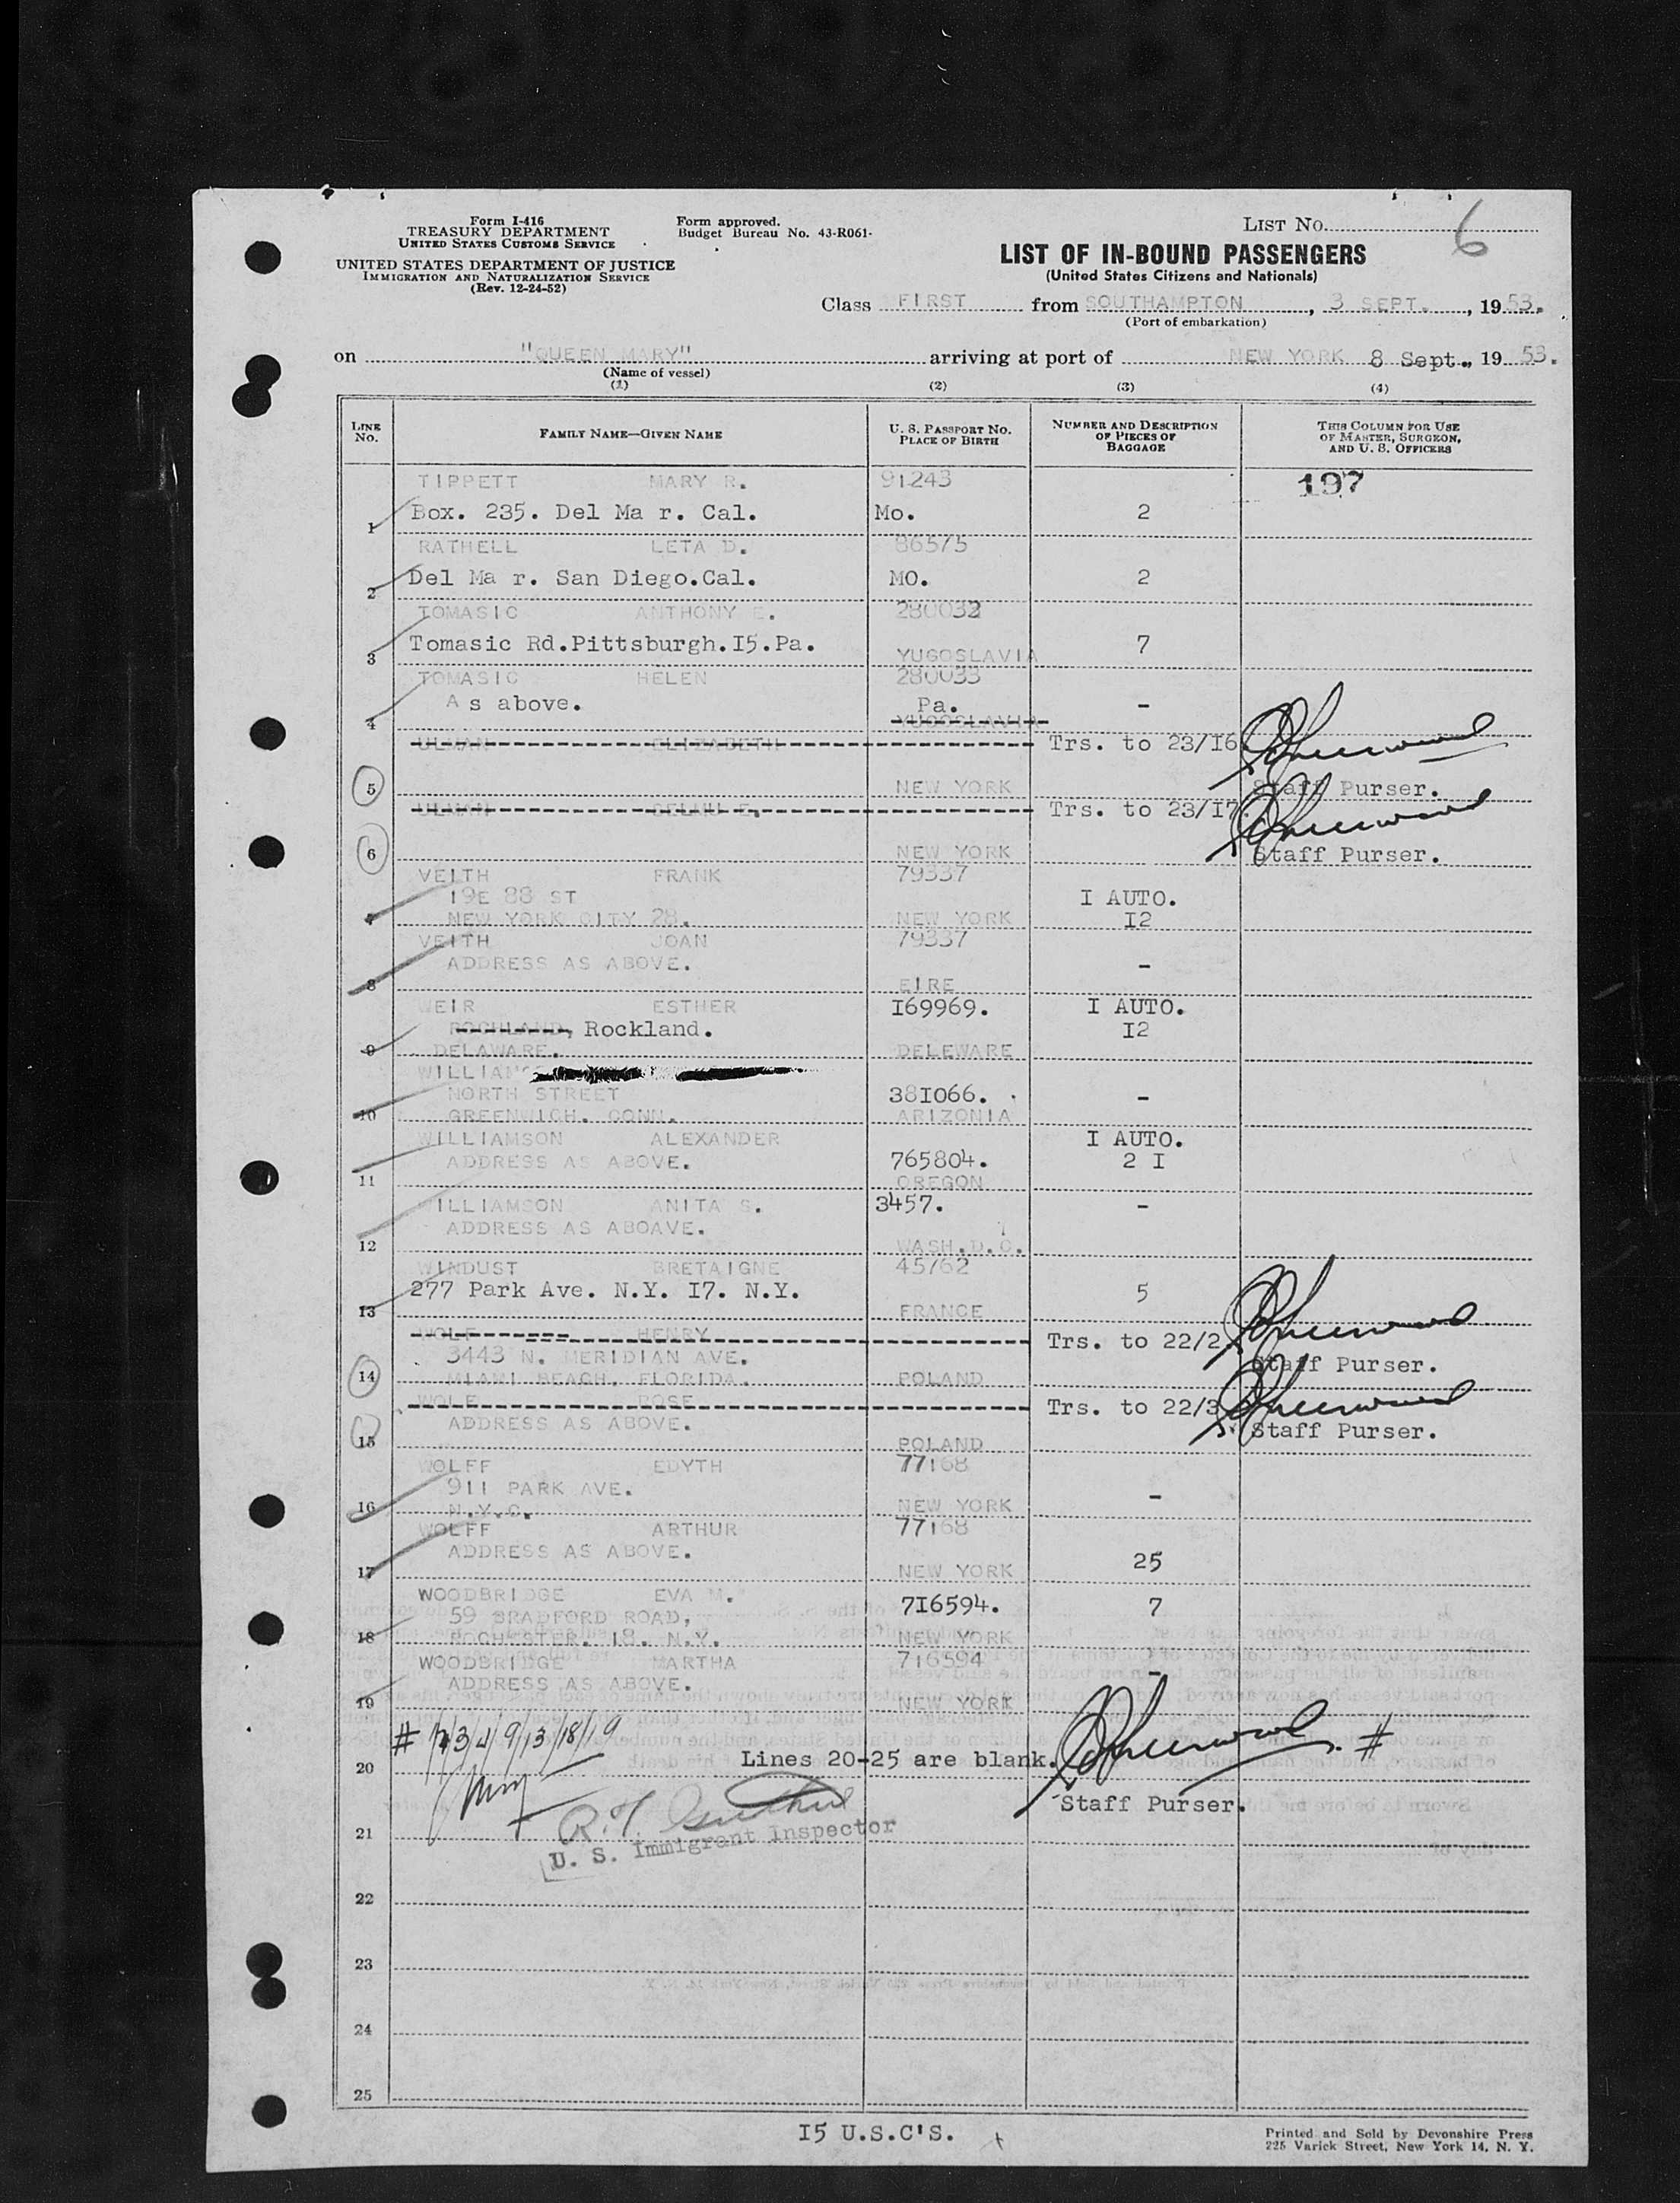 Form I-416
TREASURY DEPARTMENT
UNITED STATES CUSTOMS SERVICE
UNITED STATES DEPARTMENT OF JUSTICE
IMMIGRATION AND NATURALIZATION SERVICE
(Rev. 12-24-52)
Form approved.
Budget Bureau No. 43-R061-
LIST NO. 6
LIST OF IN-BOUND PASSENGERS
(United States Citizens and Nationals)
Class FIRST from SOUTHAMPTON, 3 SEPT., 1953.
(Port of embarkation)
on "QUEEN MARY" arriving at port of NEW YORK 8 Sept., 1953.
(Name of vessel)
(1) (2) (3) (4)
LINE NO. FAMILY NAME—GIVEN NAME U. S. PASSPORT NO. PLACE OF BIRTH NUMBER AND DESCRIPTION OF PIECES OF BAGGAGE THIS COLUMN FOR USE OF MASTER, SURGEON, AND U. S. OFFICERS
TIPPETT MARY R. 91243 197
1 Box. 235. Del Ma r. Cal. Mo. 2
RATHELL LETA D. 86575
2 Del Ma r. San Diego.Cal. MO. 2
TOMASIC ANTHONY E. 280032
3 Tomasic Rd.Pittsburgh.I5.Pa. YUGOSLAVIA 7
TOMASIC HELEN 280033
As above. Pa. -
4 YUGOSLAVIA
ULMAN ELIZABETH Trs. to 23/I6
5 NEW YORK Staff Purser.
ULMAN E. Trs. to 23/I7.
6 NEW YORK Staff Purser.
VEITH FRANK 79337
19E 88 ST I AUTO.
7 NEW YORK CITY 28. NEW YORK I2
VEITH JOAN 79337
ADDRESS AS ABOVE. -
8 EIRE
WEIR ESTHER I69969. I AUTO.
ROCKLAND, Rockland. I2
9 DELAWARE. DELEWARE
NORTH STREET 38I066. -
10 GREENWICH. CONN. ARIZONIA
WILLIAMSON ALEXANDER I AUTO.
ADDRESS AS ABOVE. 765804. 2 I
11 OREGON
WILLIAMSON ANITA S. 3457. -
ADDRESS AS ABOAVE.
12 WASH.D.C.
WINDUST BRETAIGNE 45762
277 Park Ave. N.Y. I7. N.Y. 5
13 FRANCE
WOLF HENRY Trs. to 22/2
3443 N. MERIDIAN AVE. Staff Purser.
14 MIAMI BEACH. FLORIDA. POLAND
WOLF ROSE Trs. to 22/3
ADDRESS AS ABOVE. Staff Purser.
15 POLAND
WOLFF EDYTH 77168
911 PARK AVE. -
16 N.Y.C. NEW YORK
WOLFF ARTHUR 77168
ADDRESS AS ABOVE. 25
17 NEW YORK
WOODBRIDGE EVA M. 7I6594. 7
59 BRADFORD ROAD,
18 ROCHESTER. 18. N.Y. NEW YORK
WOODBRIDGE MARTHA 716594 -
ADDRESS AS ABOVE.
19 NEW YORK
# 3/4/9/13/18/19
20 Lines 20-25 are blank. #
Staff Purser.
21 U. S. Immigrant Inspector
22
23
24
25
I5 U.S.C'S.
Printed and Sold by Devonshire Press
225 Varick Street, New York 14, N. Y.